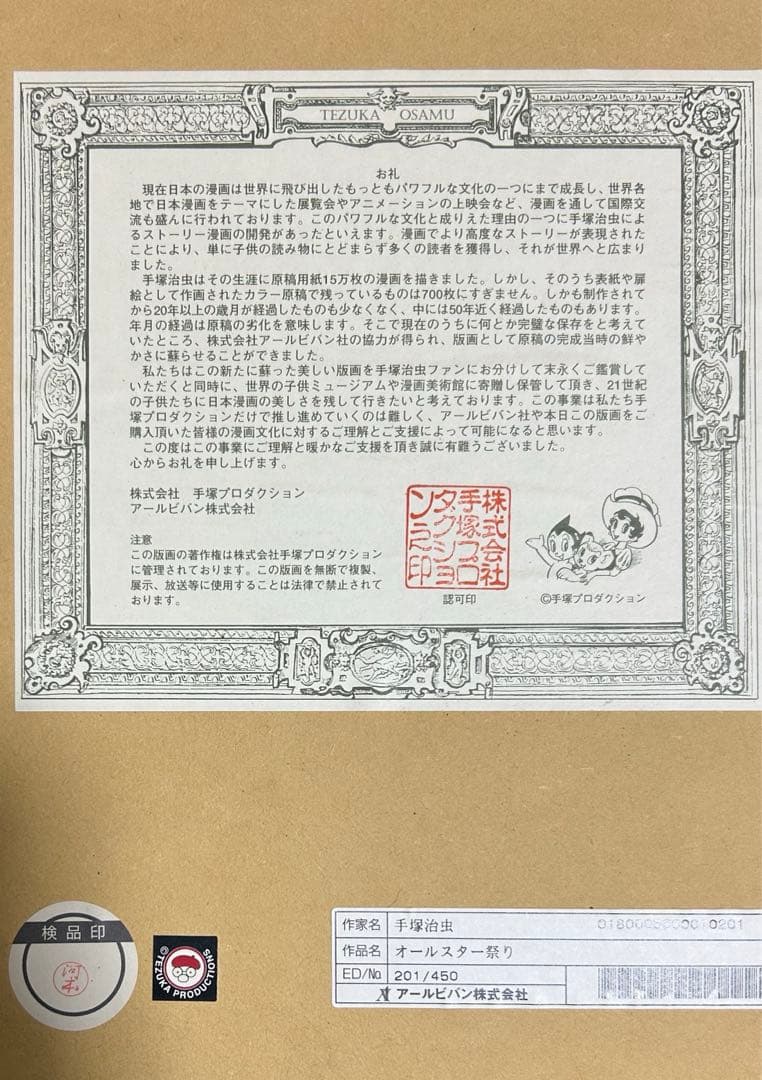 TEZUKA OSAMU
お礼
現在日本の漫画は世界に飛び出したもっともパワフルな文化の一つにまで成長し、世界各
地で日本漫画をテーマにした展覧会やアニメーションの上映会など、漫画を通して国際交
流も盛んに行われております。このパワフルな文化と成りえた理由の一つに手塚治虫によ
るストーリー漫画の開発があったといえます。漫画でより高度なストーリーが表現された
ことにより、単に子供の読み物にとどまらず多くの読者を獲得し、それが世界へと広まり
ました。
手塚治虫はその生涯に原稿用紙15万枚の漫画を描きました。しかし、そのうち表紙や扉
絵として作画されたカラー原稿で残っているものは700枚にすぎません。しかも制作されて
から20年以上の歳月が経過したものも少なくなく、中には50年近く経過したものもあります。
年月の経過は原稿の劣化を意味します。そこで現在のうちに何とか完璧な保存をと考えて
いたところ、株式会社アールビバン社の協力が得られ、版画として原稿の完成当時の鮮や
かさに蘇らせることができました。
私たちはこの新たに蘇った美しい版画を手塚治虫ファンにお分けして末永くご鑑賞して
いただくと同時に、世界の子供ミュージアムや漫画美術館に寄贈し保管して頂き、21世紀
の子供たちに日本漫画の美しさを残して行きたいと考えております。この事業は私たち手
塚プロダクションだけで推し進めていくのは難しく、アールビバン社や本日この版画をご
購入頂いた皆様の漫画文化に対するご理解とご支援によって可能になると思います。
この度はこの事業にご理解と暖かなご支援を頂き誠に有難うございました。
心からお礼を申し上げます。
株式会社 手塚プロダクション
アールビバン株式会社
注意
この版画の著作権は株式会社手塚プロダクション
に管理されております。この版画を無断で複製、
展示、放送等に使用することは法律で禁止されて
おります。
株式会社
手塚プロ
ダクショ
ン之印
認可印
©手塚プロダクション
検品印
河本
©TEZUKA PRODUCTIONS
作家名 手塚治虫
作品名 オールスター祭り
ED/No 201/450
アールビバン株式会社